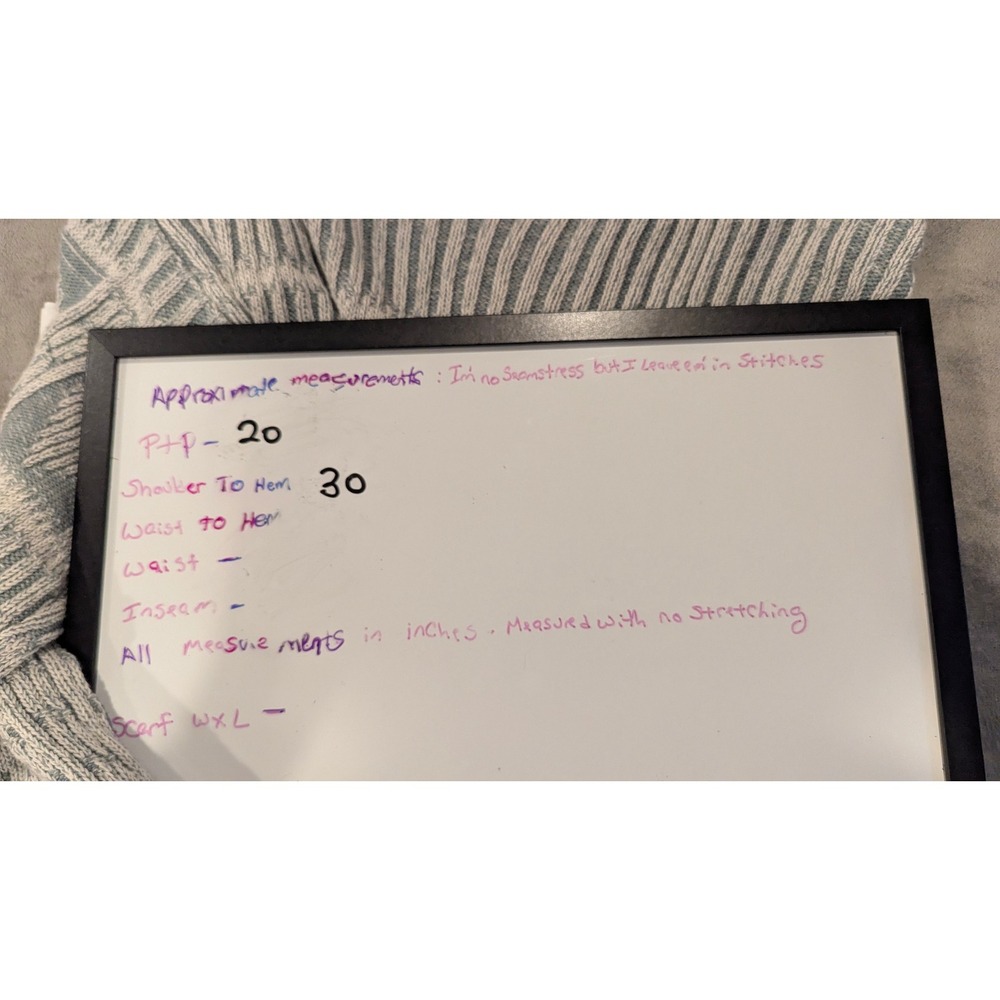 Approximate measurements : I'm no Seamstress but I leave em in Stitches
P+P - 20
Shoulder To Hem 30
Waist to Hem
Waist -
Inseam -
All measurements in inches. Measured with no stretching
Scarf W x L -